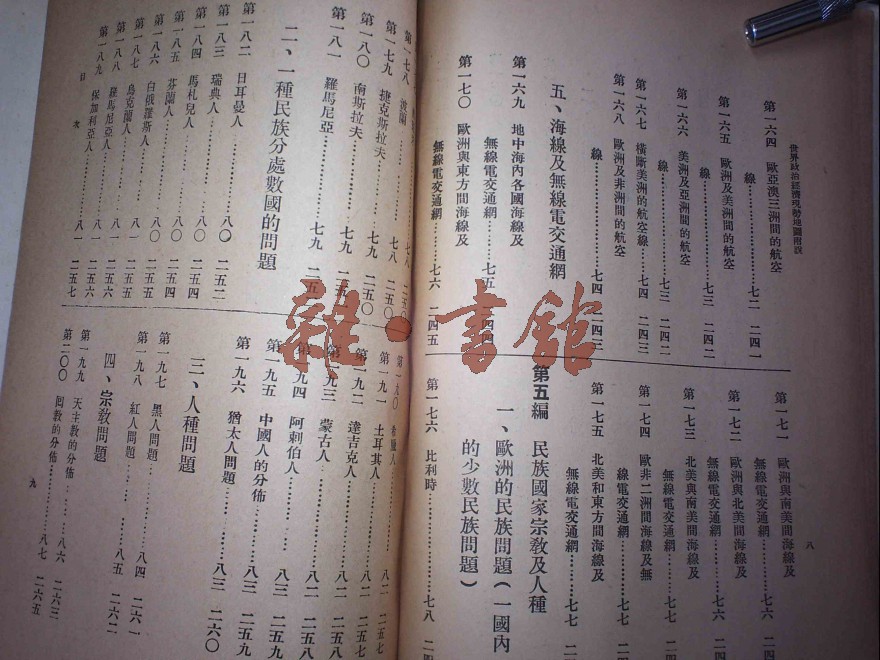 世界政治經濟現勢地圖兩說
第一六四　歐亞澳三洲間的航空
線…………七二　二四一
第一六五　歐洲及美洲間的航空
線…………七三　二四二
第一六六　美洲及亞洲間的航空
線…………七三　二四二
第一六七　橫斷美洲的航空線……七四　二四三
第一六八　歐洲及非洲間的航空
線…………七四　二四三
五、海線及無線電交通網
第一六九　地中海內各國海線及
無線電交通網……七五　二四四
第一七〇　歐洲與東方間海線及
無線電交通網……七六　二四五
八
第一七一　歐洲與南美間海線及
無線電交通網……七六　二四
第一七二　歐洲與北美間海線及
無線電交通網……七六　二四
第一七三　北美與南美間海線及
無線電交通網……七七　二四
第一七四　歐非二洲間海線及無
線電交通網……七七　二四
第一七五　北美和東方間海線及
無線電交通網……七七　二四
第五編　民族國家宗教及人種
一、歐洲的民族問題（一國內
的少數民族問題）
第一七六　比利時…………七八　二四
第一七八　波蘭…………七八　二五〇
第一七九　捷克斯拉夫…………七八　二五〇
第一八〇　南斯拉夫…………七九　二五〇
第一八一　羅馬尼亞…………七九　二五
二、一種民族分處數國的問題
第一八二　日耳曼人…………八〇　二五二
第一八三　瑞典人…………八〇　二五四
第一八四　馬札兒人…………八〇　二五四
第一八五　芬蘭人…………八〇　二五四
第一八六　白俄羅斯人…………八〇　二五五
第一八七　烏克蘭人…………八一　二五五
第一八八　羅馬尼亞人…………八一　二五六
第一八九　保加利亞人…………八一　二五七
目次
第一九〇
第一九一　土耳其人…………八二　二五七
第一九二　達吉克人…………八二　二五八
第一九三　蒙古人…………八二　二五八
第一九四　阿剌伯人…………八三　二五九
第一九五　中國人的分佈…………八三　二五九
第一九六　猶太人問題…………八三　二六〇
三、人種問題
第一九七　黑人問題…………八四　二六一
第一九八　紅人問題…………八五　二六二
四、宗教問題
第一九九　天主教的分佈…………八六　二六三
第二〇〇　回教的分佈…………八七　二六五
九
雜·書館